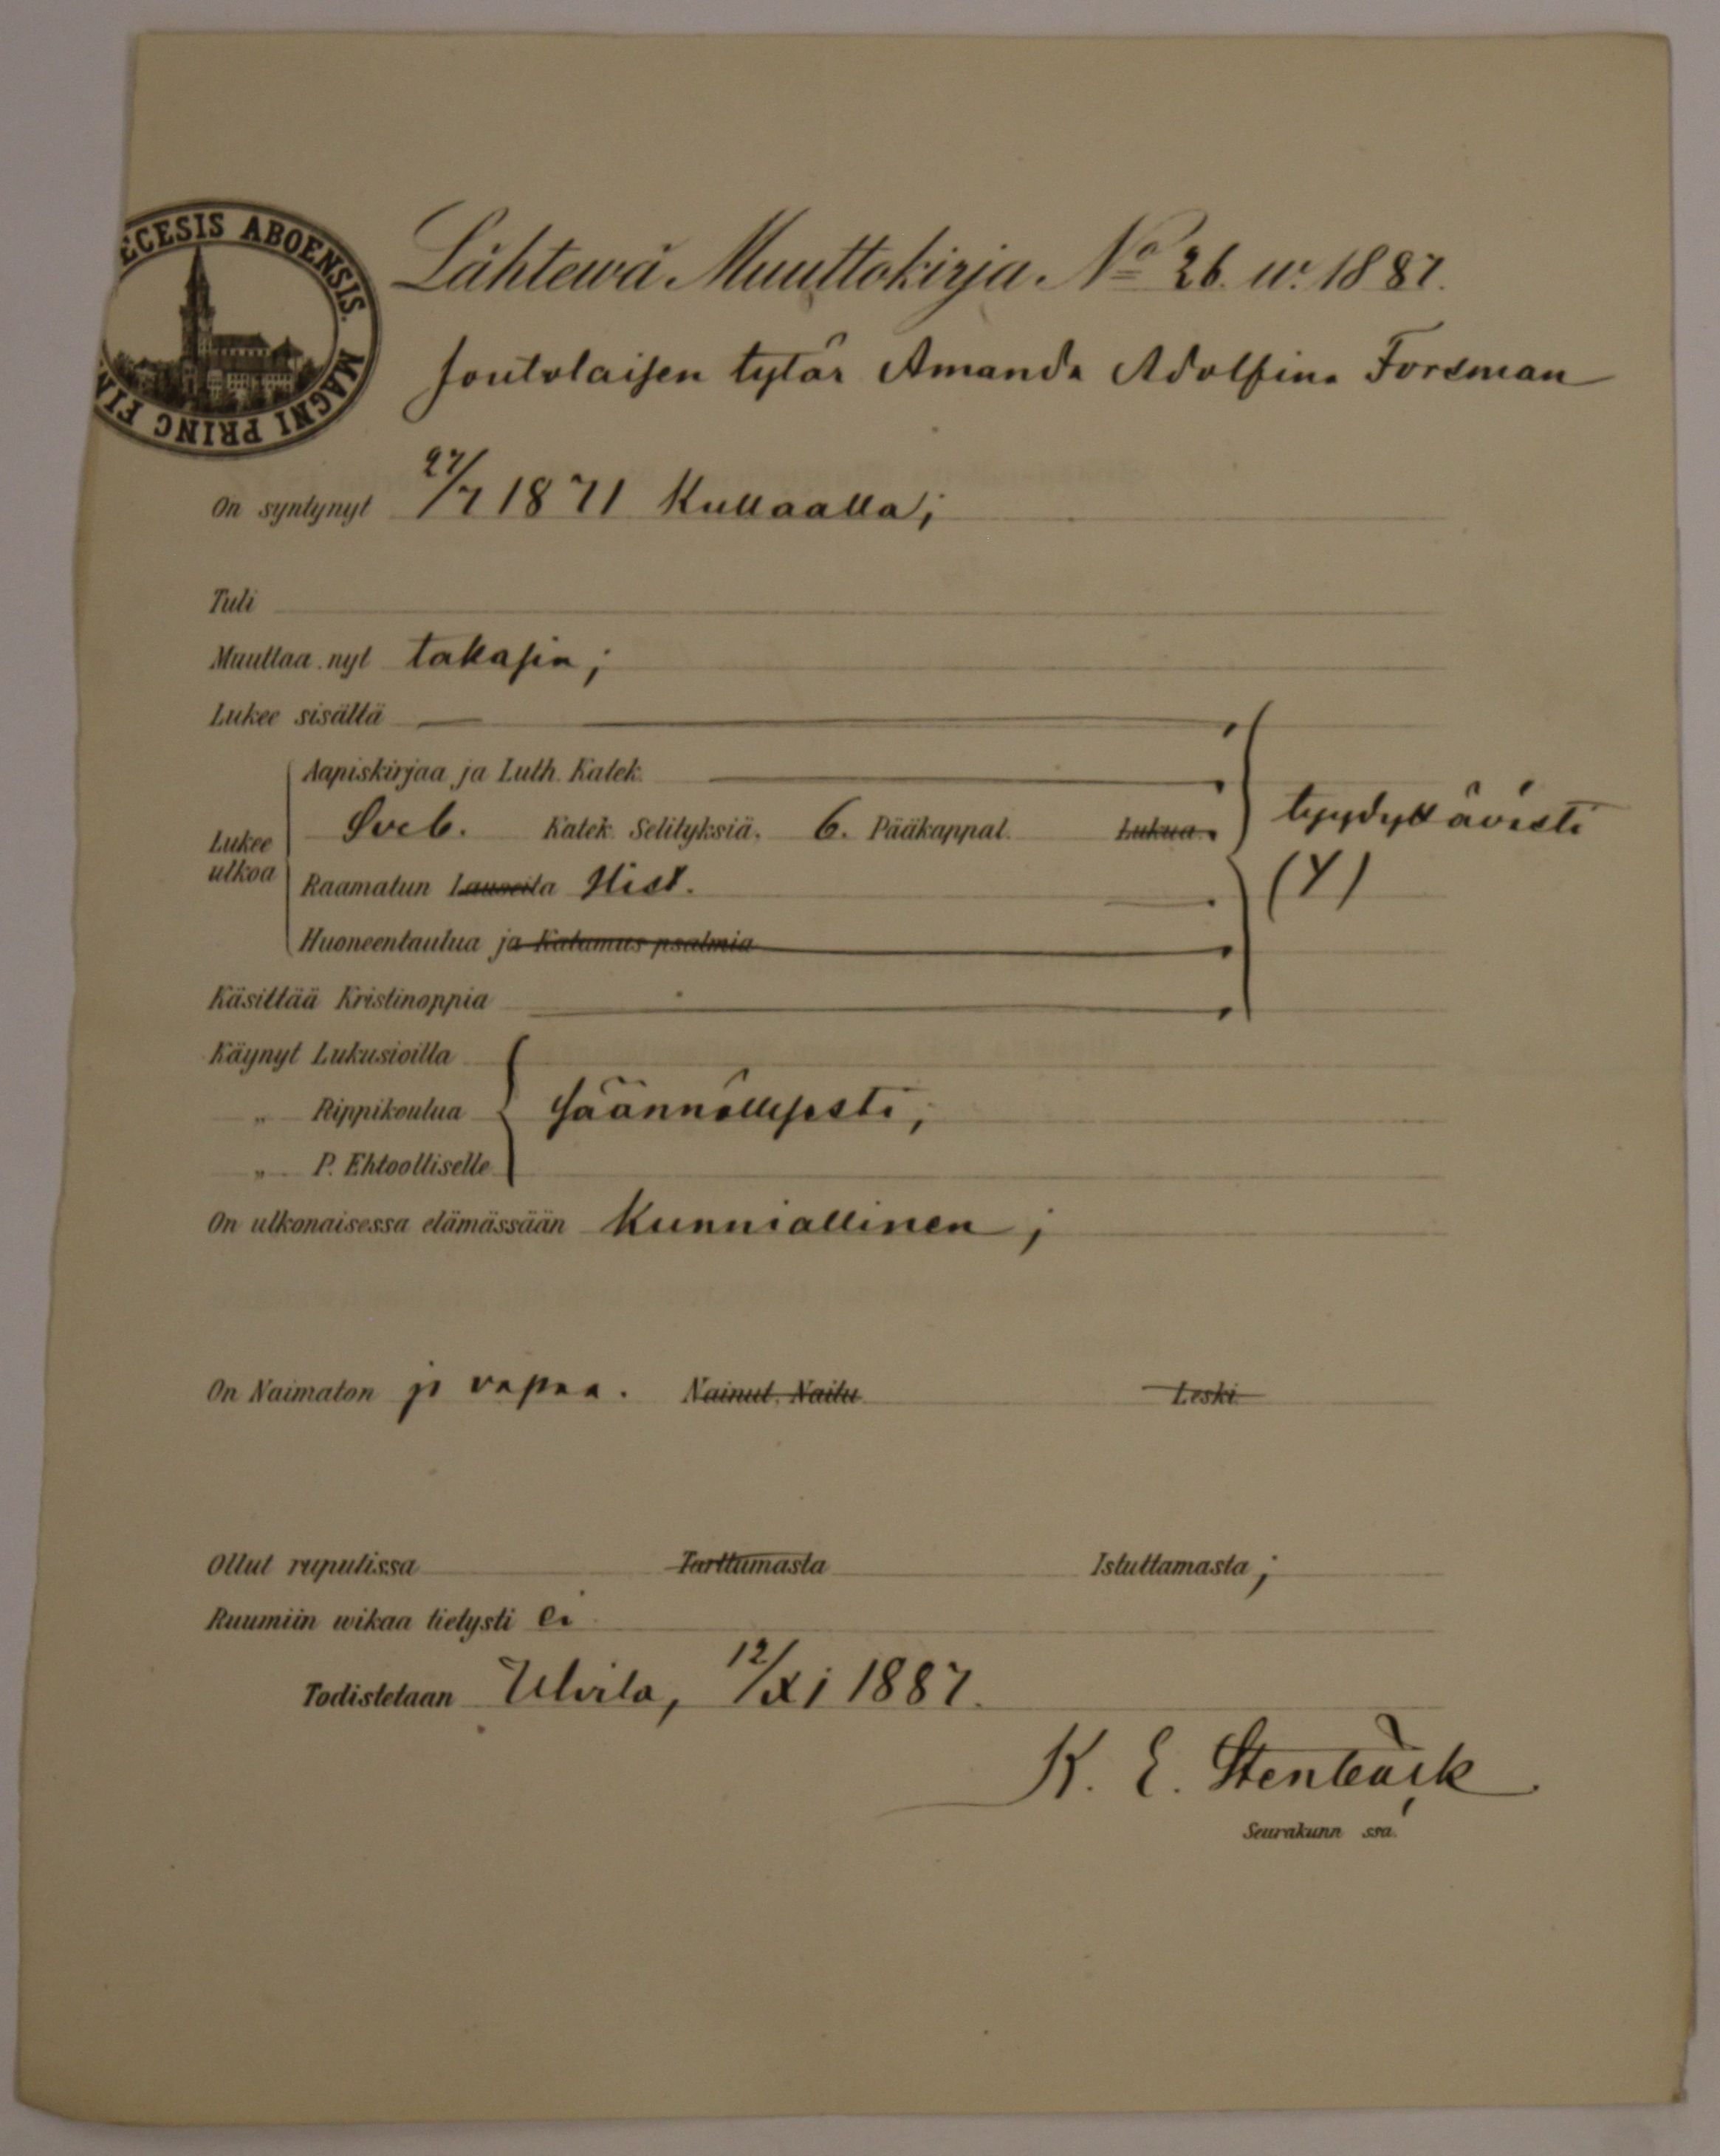 ECESIS ABOENSIS. MAGNI PRINC FIN
Lähtewä Muuttokirja No 26. w. 1887.
Joutolaisen tytär Amanda Adolfina Forsman
On syntynyt 27/7 1871 Kullaalla;
Tuli
Muuttaa nyt takasin;
Lukee sisältä
Aapiskirjaa ja Luth. Katek.
Lukee ulkoa
Sveb. Katek. Selityksiä, 6. Pääkappal. Lukua. tyydyttävästi
Raamatun Lauseita Hist. (Y)
Huoneentaulua ja Katumus psalmia
Käsittää Kristinoppia
Käynyt Lukusioilla
„ Rippikoulua säännöllisesti;
„ P. Ehtoolliselle
On ulkonaisessa elämässään Kunniallinen;
On Naimaton ja vapaa. Nainut, Naitu Leski.
Ollut rupulissa Tarttumasta Istuttamasta;
Ruumiin wikaa tietysti ei
Todistetaan Ulvila, 12/XI 1887.
K. E. Stenbäck
Seurakunn ssa.